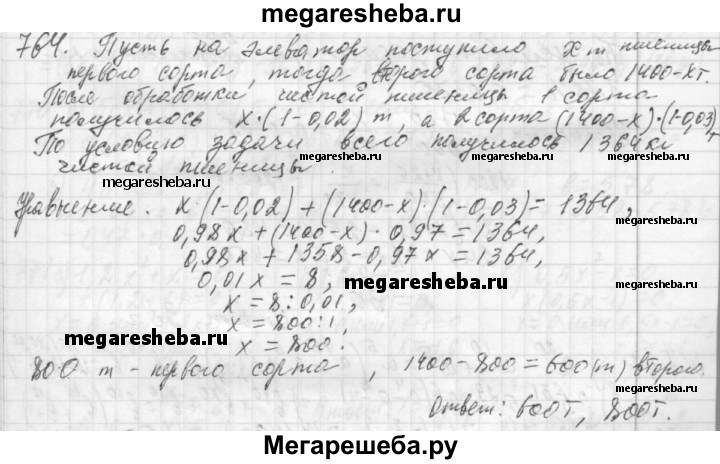 megaresheba.ru
764. Пусть на элеватор поступило x т пшеницы
первого сорта, тогда второго сорта было 1400-x т.
После обработки чистой пшеницы 1 сорта
получилось x·(1-0,02) т, а 2 сорта (1400-x)·(1-0,03) т
По условию задачи всего получилось 1364 кг
megaresheba.ru megaresheba.ru
чистой пшеницы.
megaresheba.ru
Уравнение. x·(1-0,02)+(1400-x)·(1-0,03)=1364,
0,98x+(1400-x)·0,97=1364,
0,98x+1358-0,97x=1364,
0,01x=8,
megaresheba.ru
x=8:0,01,
x=800:1,
megaresheba.ru
x=800.
800 т - первого сорта, 1400-800=600(т) второго.
megaresheba.ru
Ответ: 600т, 800т.
Мегарешеба.ру